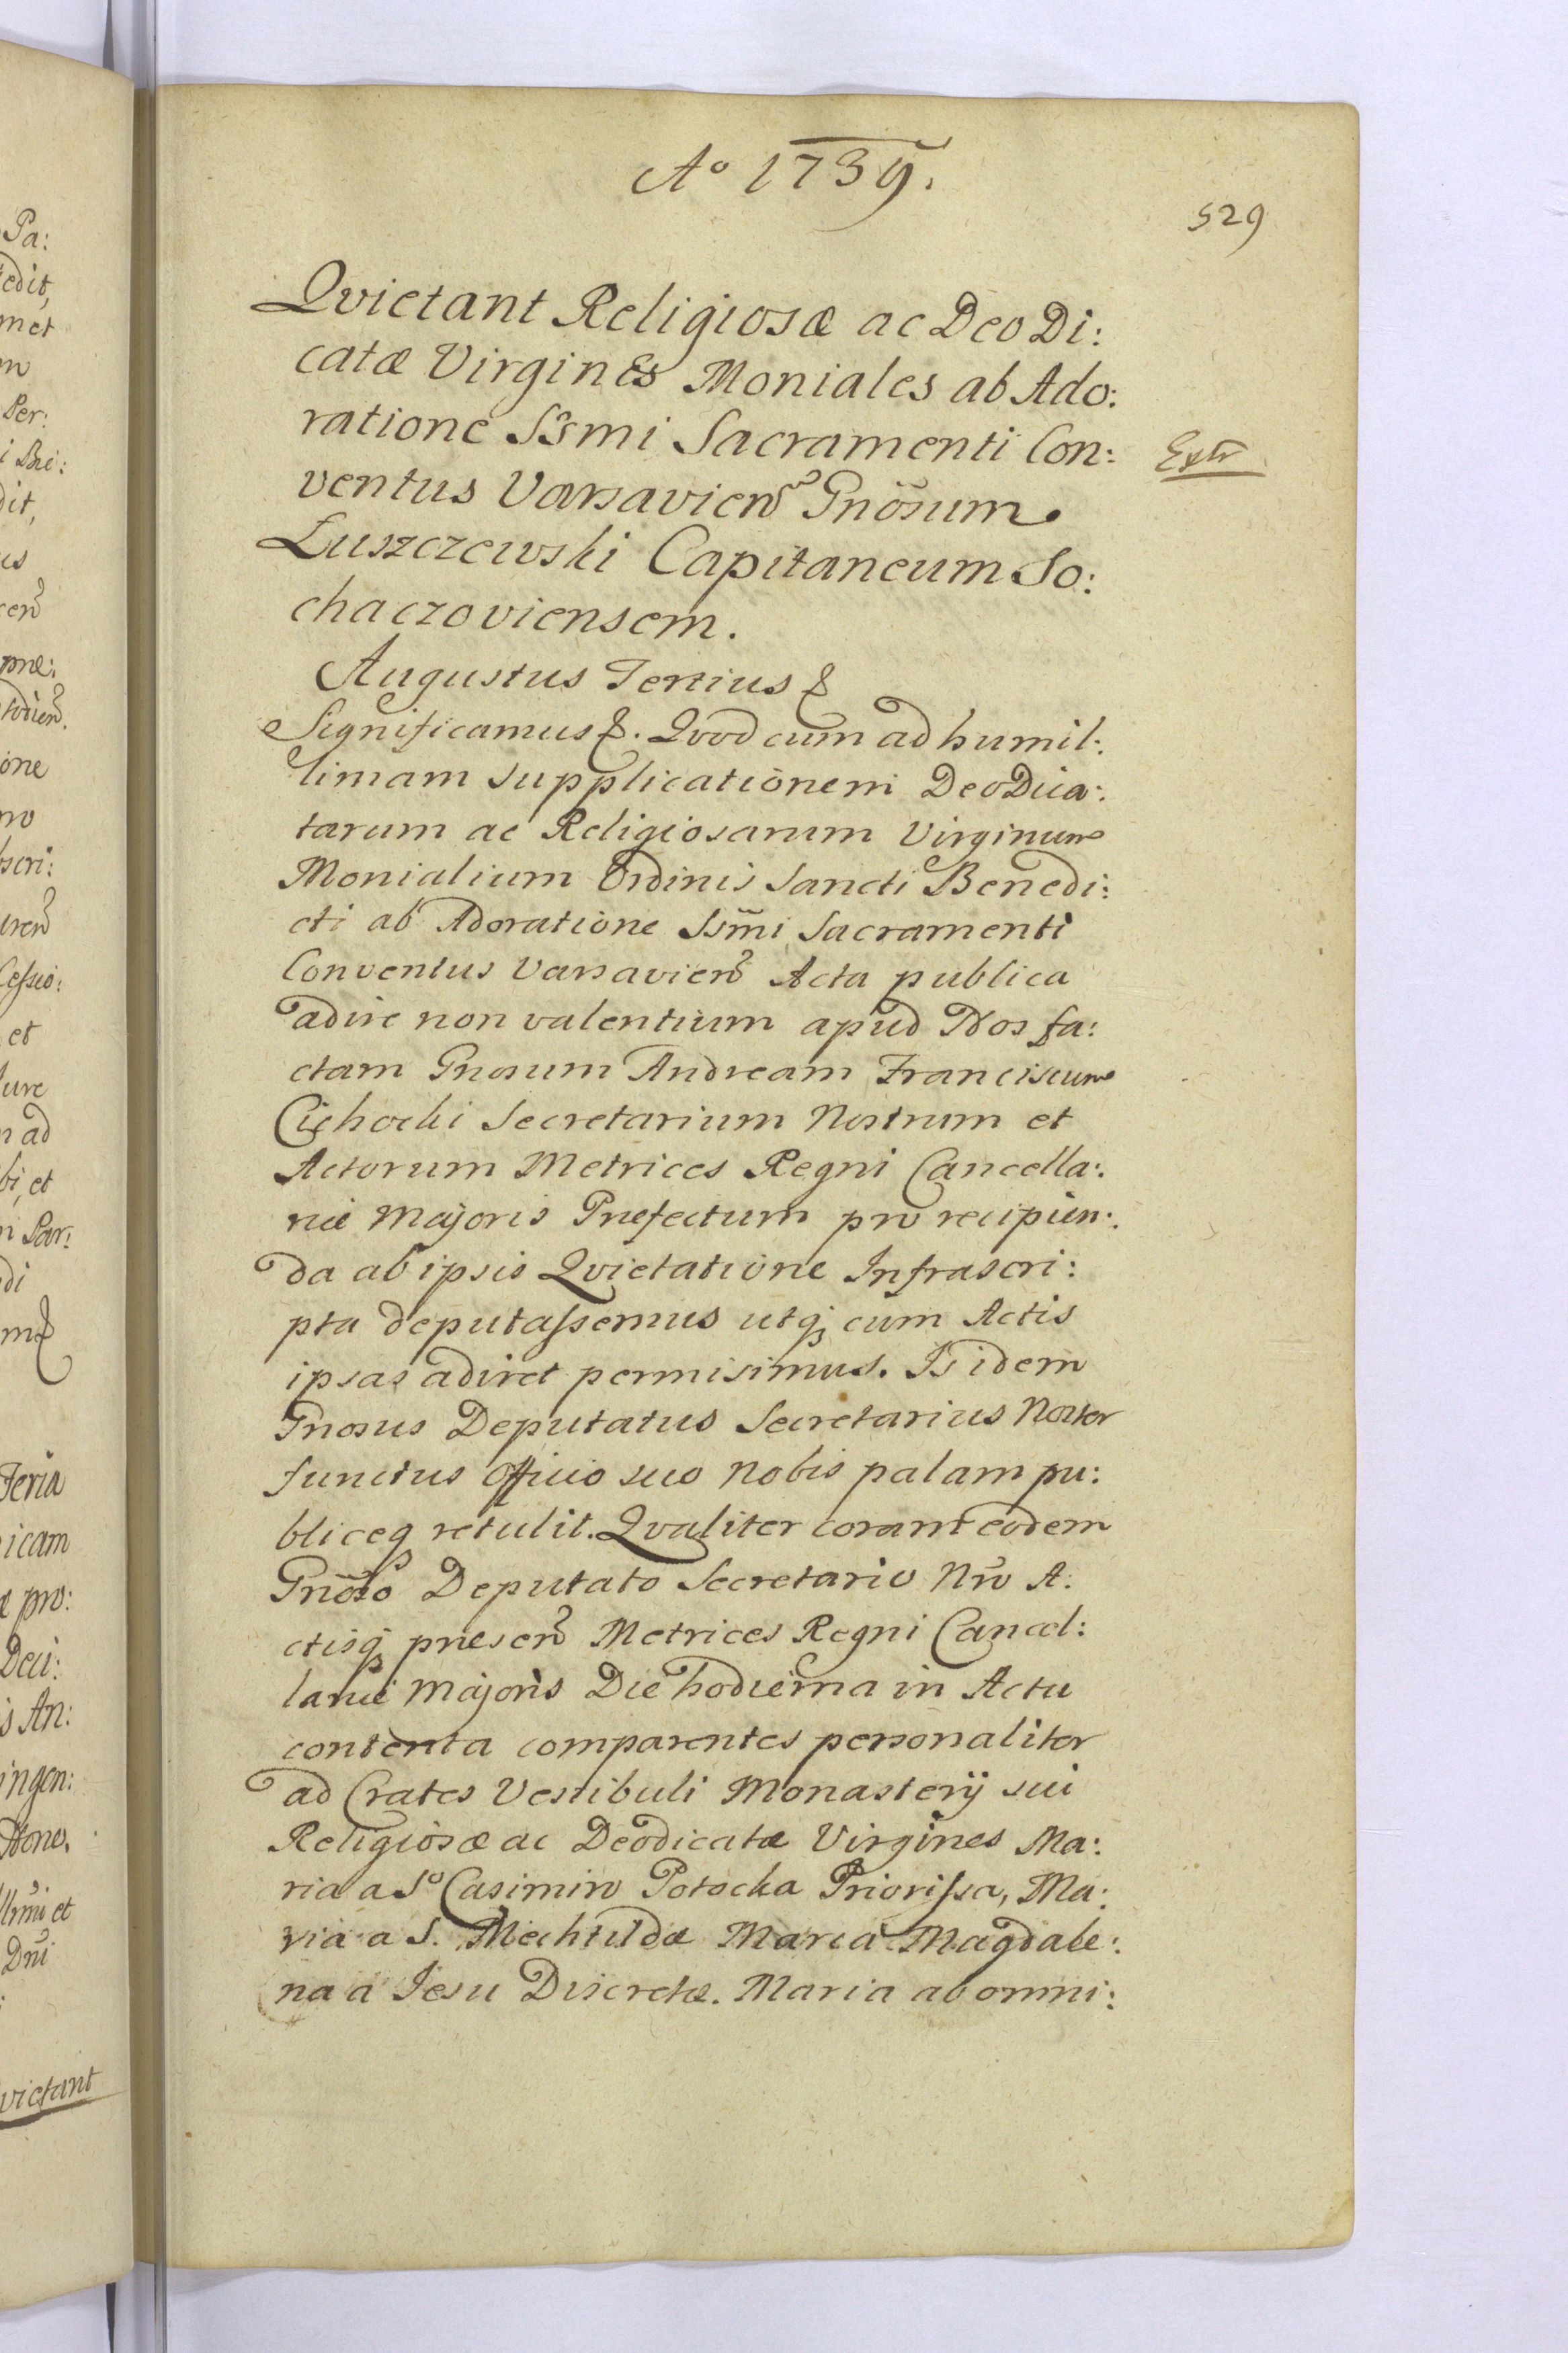 Aº 1739.
529
Qvietant Religiosæ ac Deo Di:
catæ Virgines Moniales ab Ado:
ratione SSmi Sacramenti Con:
Extr
ventus Varsavien̄ Gnōsum
Łuszczewski Capitaneum So:
chaczoviensem.
Augustus Tertius &
Significamus &. Qvod cum ad humil:
limam supplicationem Deo Dica:
tarum ac Religiosarum Virginum
Monialium Ordinis Sancti Benedi:
cti ab Adoratione SSm̄i Sacramenti
Conventus Varsavien̄ Acta publica
adire non valentium apud Nos fa:
ctam Gnosum Andream Franciscum
Cichocki Secretarium Nostrum et
Actorum Metrices Regni Cancella:
riæ Majoris Præfectum pro recipien:
da ab ipsis Qvietatione Infrascri:
pta deputassemus utq; cum Actis
ipsas adiret permisimus. Is idem
Gnosus Deputatus Secretarius Noster
functus Officio suo Nobis palam pu:
bliceq; retulit. Qvaliter coram eodem
Gnōso Deputato Secretario Nr̄o A:
ctisq; præsen̄ Metrices Regni Cancel:
lariæ Majoris Die hodierna in Actu
contenta comparentes personaliter
ad Crates Vestibuli Monasterÿ sui
Religiosæ ac Deodicatæ Virgines Ma:
ria a Sº Casimiro Potocka Priorissa, Ma:
ria a S. Mechtilda Maria Magdale:
na a Jesu Discretæ. Maria ab omni:
Pa:
edit,
met
Per:
dit,
us
præ:
one
scri:
Cessio:
et
Jure
ad
bi, et
Par:
di
Feria
icam
pro:
Deci:
s An:
ingen:
et
Dn̄i
vietant